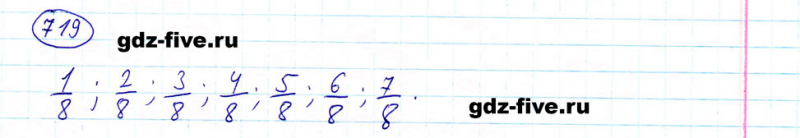 719
gdz-five.ru
1/8 ; 2/8 ; 3/8 ; 4/8 ; 5/8 ; 6/8 ; 7/8 .
gdz-five.ru